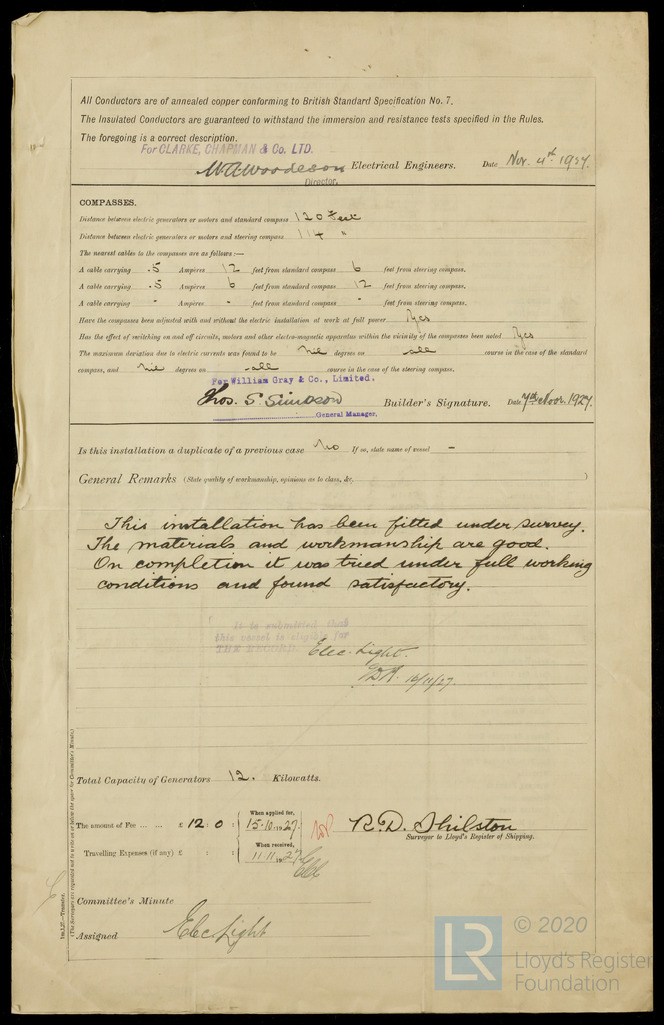 All Conductors are of annealed copper conforming to British Standard Specification No. 7.
The Insulated Conductors are guaranteed to withstand the immersion and resistance tests specified in the Rules.
The foregoing is a correct description.
For CLARKE, CHAPMAN & Co. LTD.
W.A. Woodeson Electrical Engineers. Date Nov. 4th 1927.
Director.
COMPASSES.
Distance between electric generators or motors and standard compass 120 feet
Distance between electric generators or motors and steering compass 114 "
The nearest cables to the compasses are as follows:—
A cable carrying .5 Ampères 12 feet from standard compass 6 feet from steering compass.
A cable carrying .5 Ampères 6 feet from standard compass 12 feet from steering compass.
A cable carrying - Ampères - feet from standard compass - feet from steering compass.
Have the compasses been adjusted with and without the electric installation at work at full power Yes
Has the effect of switching on and off circuits, motors and other electro-magnetic apparatus within the vicinity of the compasses been noted Yes
The maximum deviation due to electric currents was found to be nil degrees on all course in the case of the standard
compass, and nil degrees on all course in the case of the steering compass.
For William Gray & Co., Limited.
Thos. S. Simpson Builder's Signature. Date 7th Nov. 1927.
General Manager.
Is this installation a duplicate of a previous case No If so, state name of vessel -
General Remarks (State quality of workmanship, opinions as to class, &c. )
This installation has been fitted under survey.
The materials and workmanship are good.
On completion it was tried under full working
conditions and found satisfactory.
It is submitted that
this vessel is eligible for
THE RECORD. Elec. Light.
16/11/27.
Total Capacity of Generators 12. Kilowatts.
The amount of Fee ... ... £ 12 : 0 : When applied for, 15.10.1927.
R.D. Shilston
Surveyor to Lloyd's Register of Shipping.
Travelling Expenses (if any) £ : : When received, 11.11.1927
Committee's Minute
Assigned Elec. Light
(The Surveyors are requested not to write on or below the space for Committee's Minute.)
© 2020
LR Lloyd's Register
Foundation